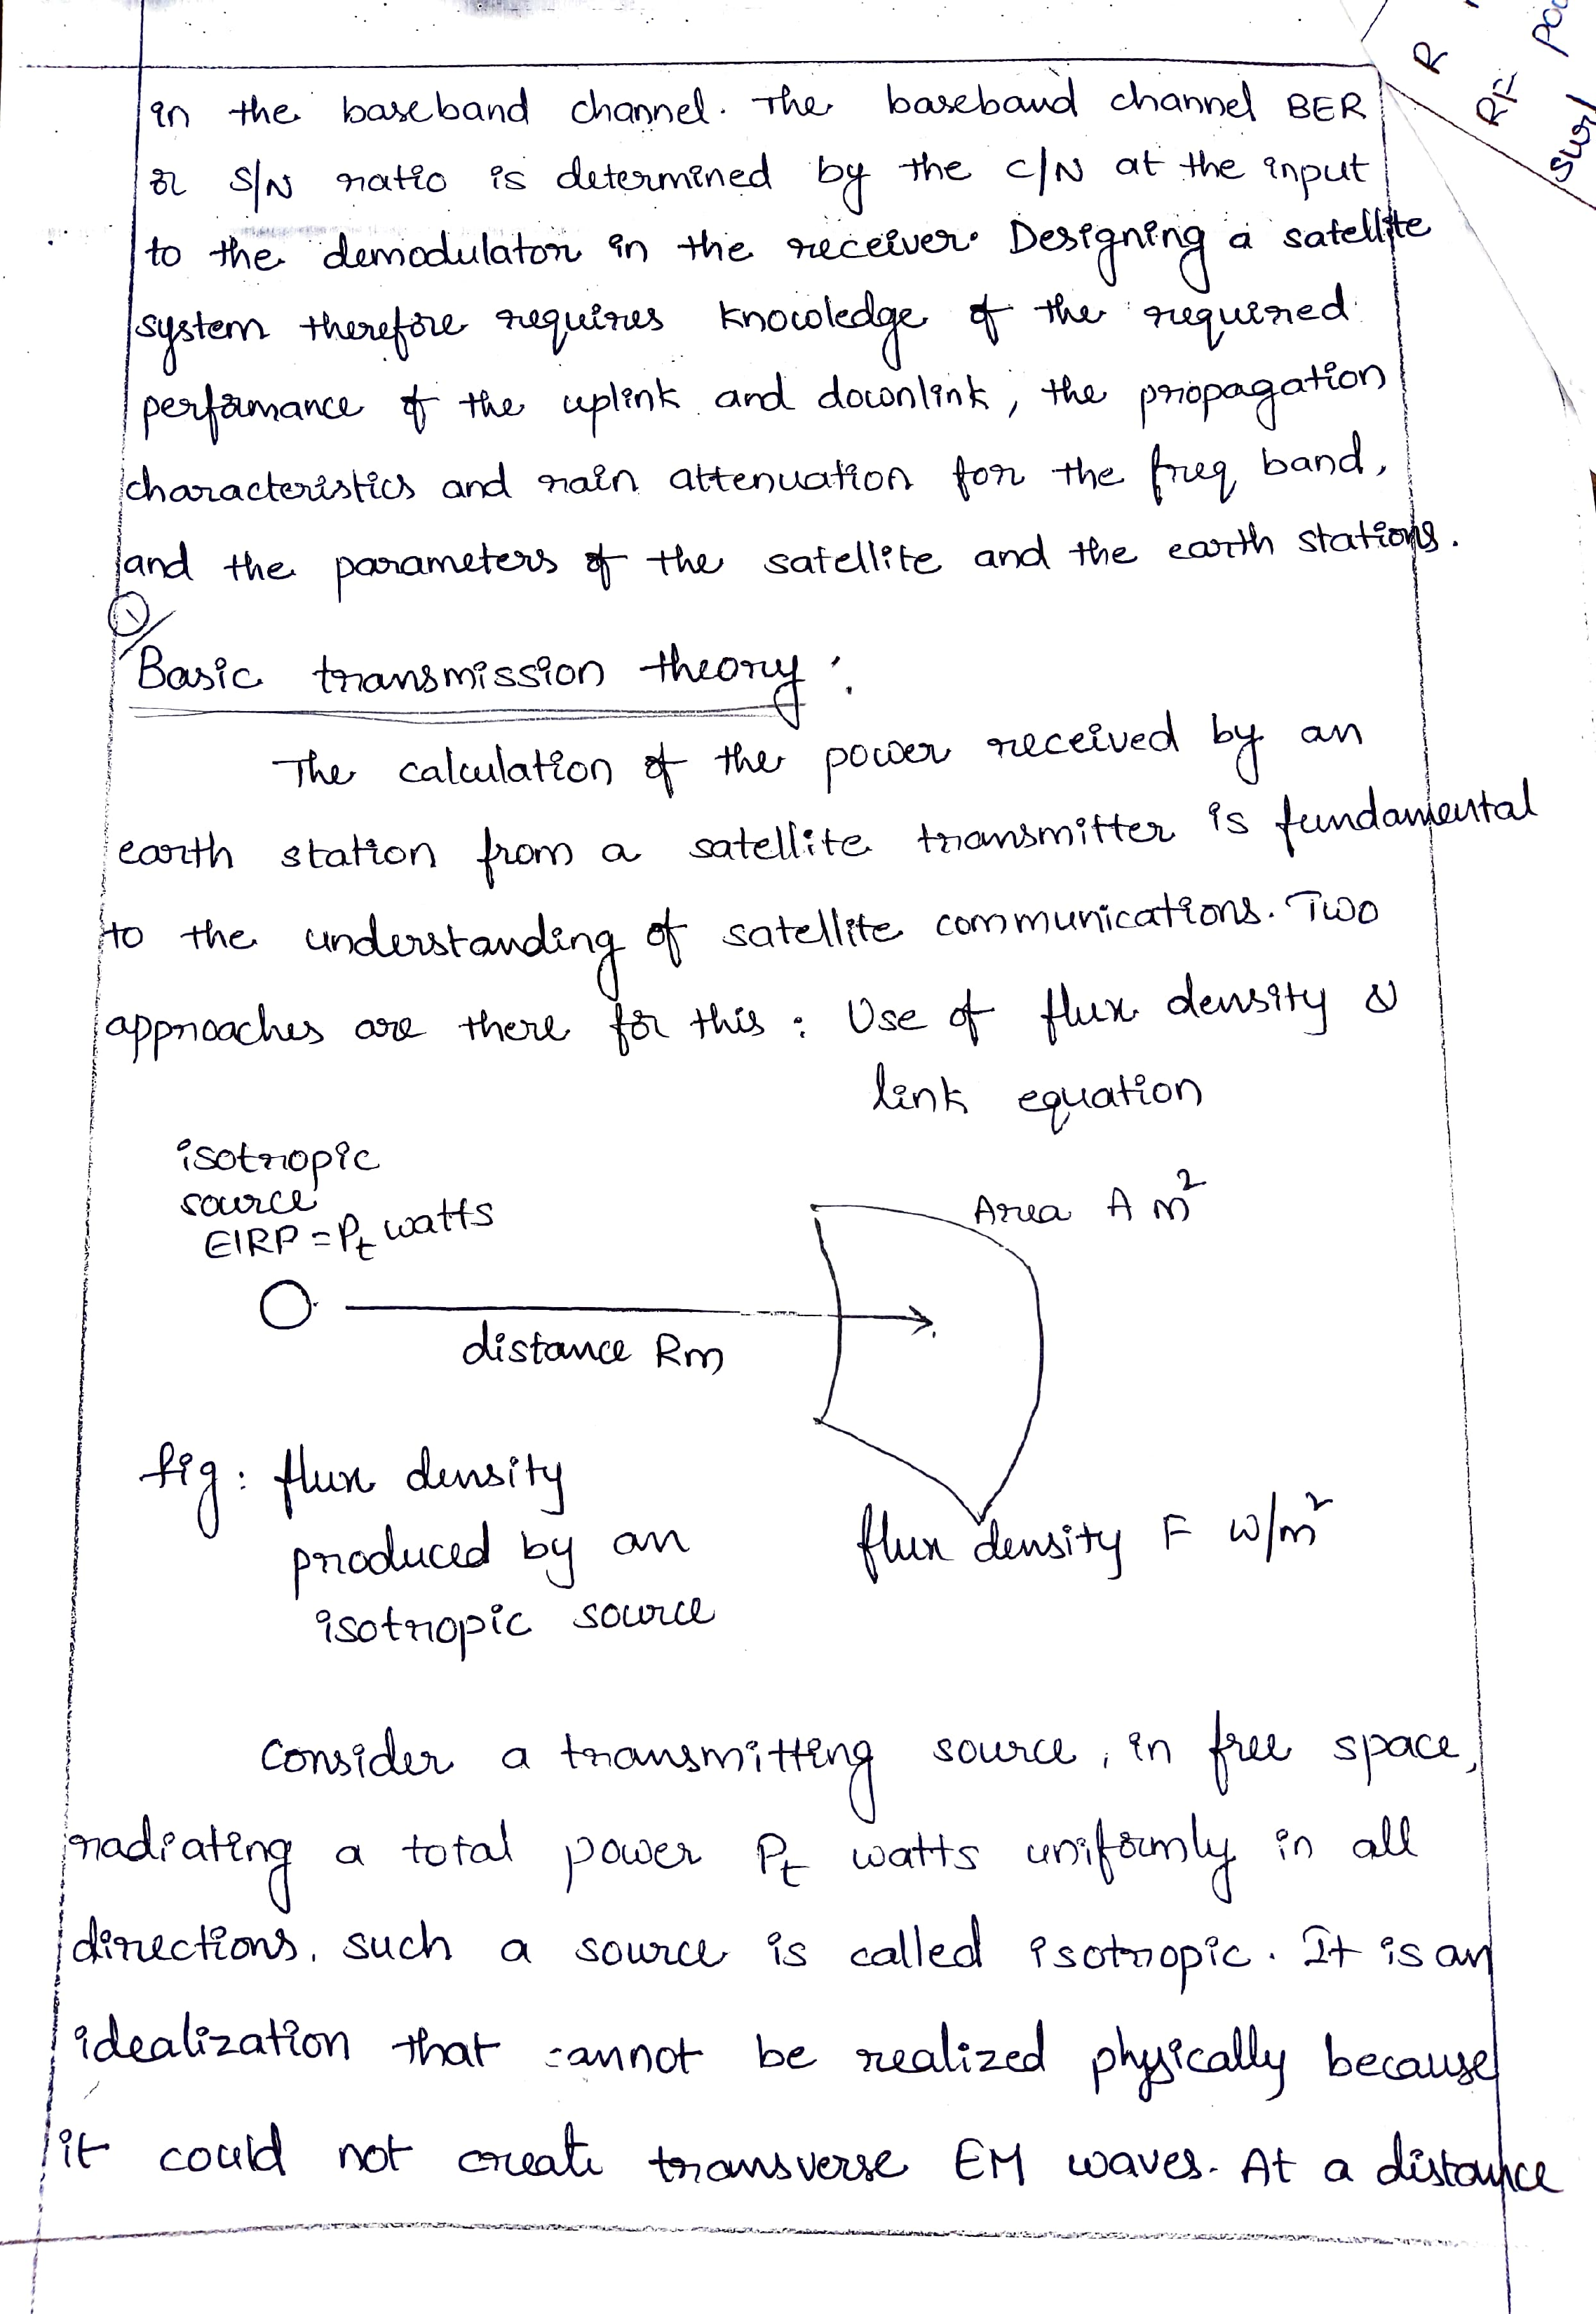 in the baseband channel. The baseband channel BER
or S/N ratio is determined by the C/N at the input
to the demodulator in the receiver. Designing a satellite
system therefore requires knowledge of the required
performance of the uplink and downlink, the propagation
characteristics and rain attenuation for the freq band,
and the parameters of the satellite and the earth stations.
Basic transmission theory:
The calculation of the power received by an
earth station from a satellite transmitter is fundamental
to the understanding of satellite communications. Two
approaches are there for this: Use of flux density &
link equation
isotropic
source
EIRP = Pt watts
Area A m²
distance Rm
fig: flux density
produced by an
isotropic source
flux density F W/m²
Consider a transmitting source, in free space,
radiating a total power Pt watts uniformly in all
directions. such a source is called isotropic. It is an
idealization that cannot be realized physically because
it could not create transverse EM waves. At a distance
R
RF